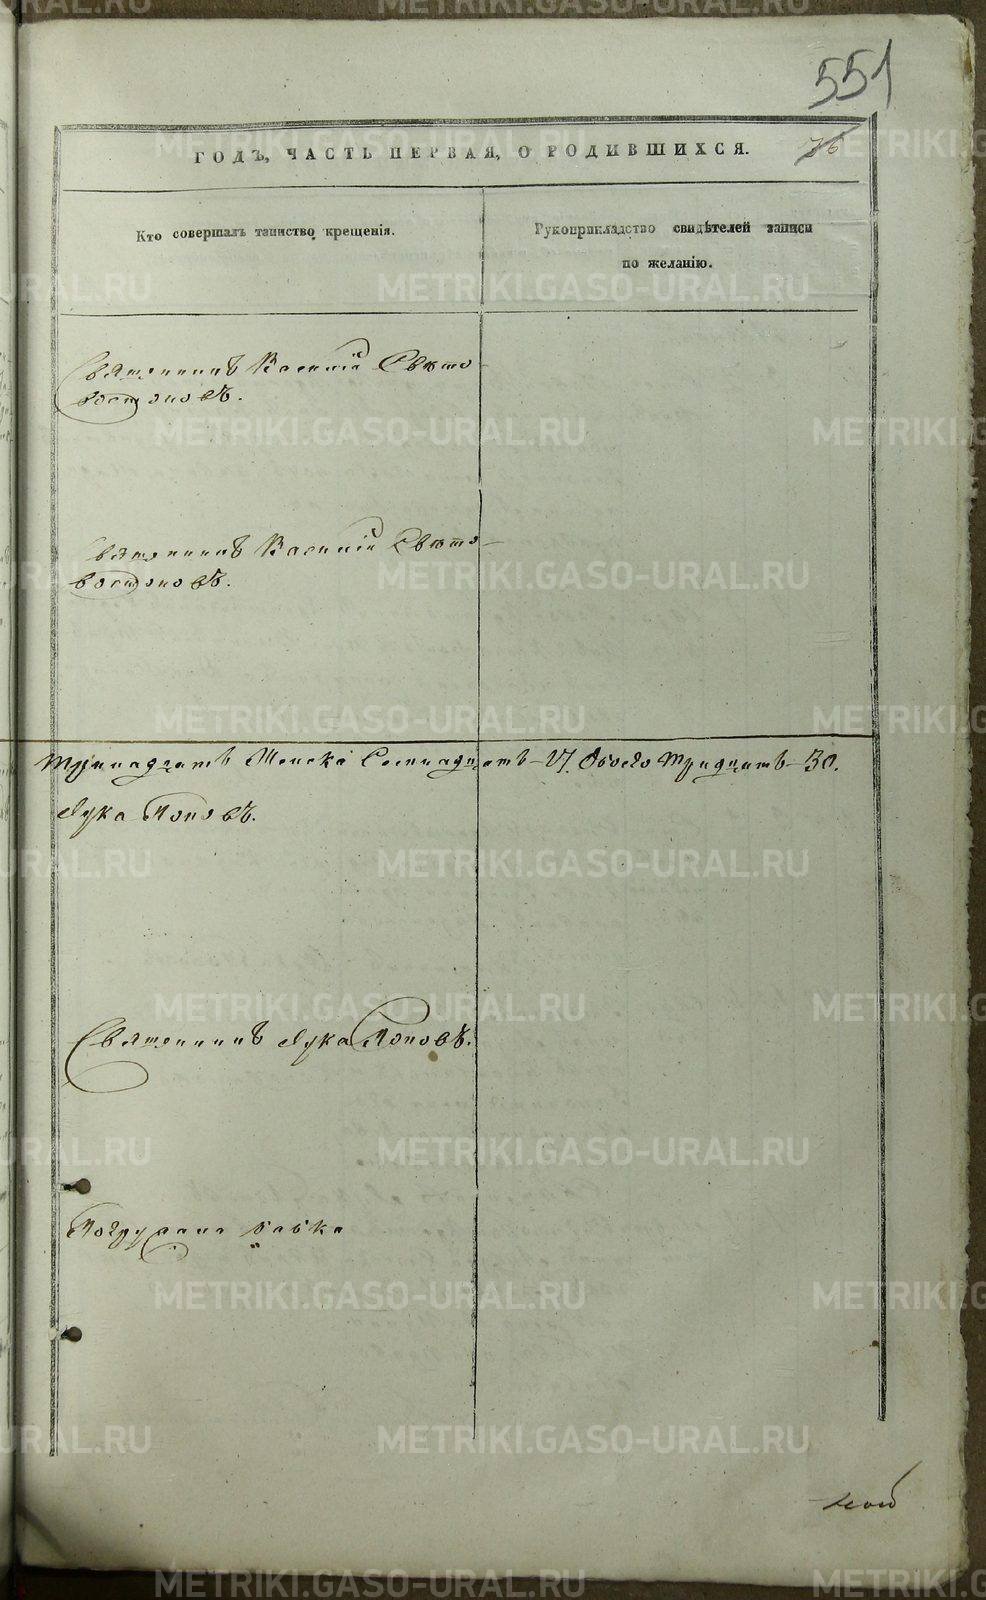 551
ГОДЪ, ЧАСТЬ ПЕРВАЯ, О РОДИВШИХСЯ.
76
Кто совершалъ таинство крещенія.
Рукоприкладство свидѣтелей записи
по желанію.
Священникъ Василій Свѣто-
востоковъ.
Священникъ Василій Свѣто-
востоковъ.
тринадцать Женска Семнадцать - 17. Обоего тридцать - 30.
Лука Поповъ.
Священникъ Лука Поповъ.
Погружала бабка
METRIKI.GASO-URAL.RU